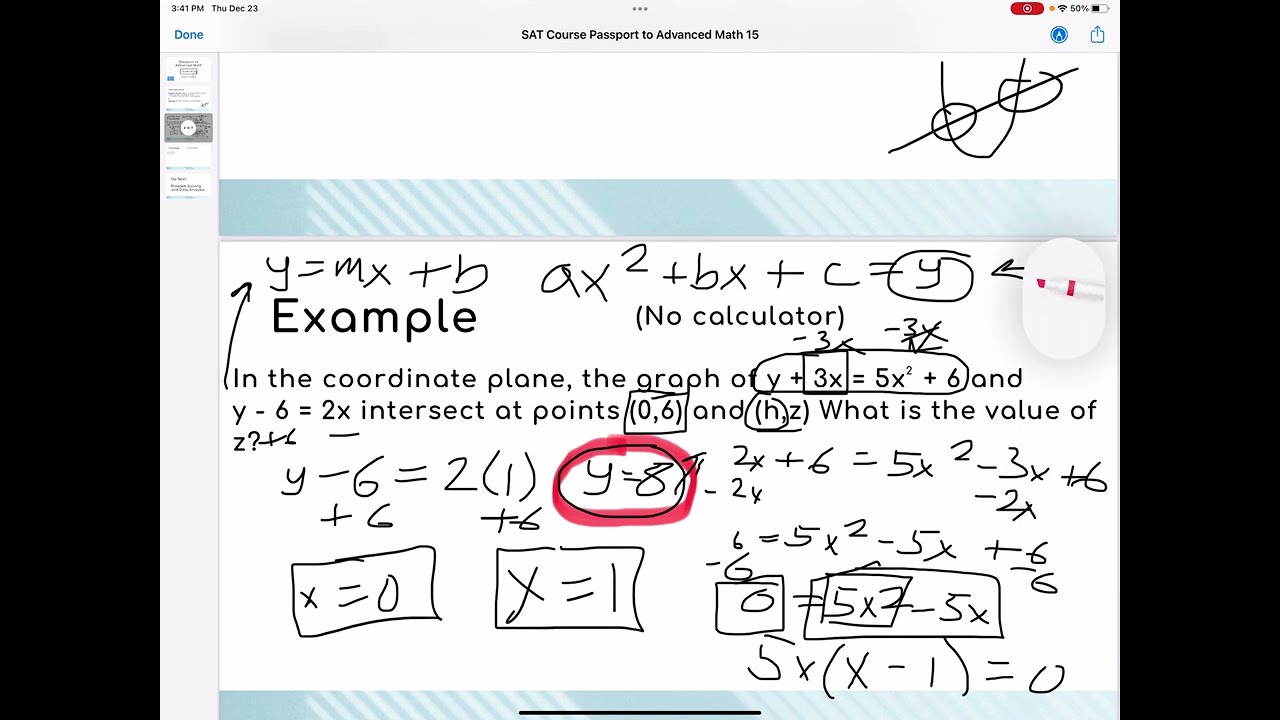 3:41 PM Thu Dec 23
50%
Done
SAT Course Passport to Advanced Math 15
Passport to
Advanced Math
Up Next
Problem Solving
and Data Analysis
y = mx + b
ax² + bx + c = y
Example
(No calculator)
-3x -3x
In the coordinate plane, the graph of y + 3x = 5x² + 6 and
y - 6 = 2x intersect at points (0,6) and (h,z) What is the value of
z? +6
y - 6 = 2(1)
+6 +6
y = 8
2x + 6 = 5x² - 3x + 6
-2x -2x
6 = 5x² - 5x + 6
-6 -6
x = 0
x = 1
0 = 5x² - 5x
5x(x - 1) = 0